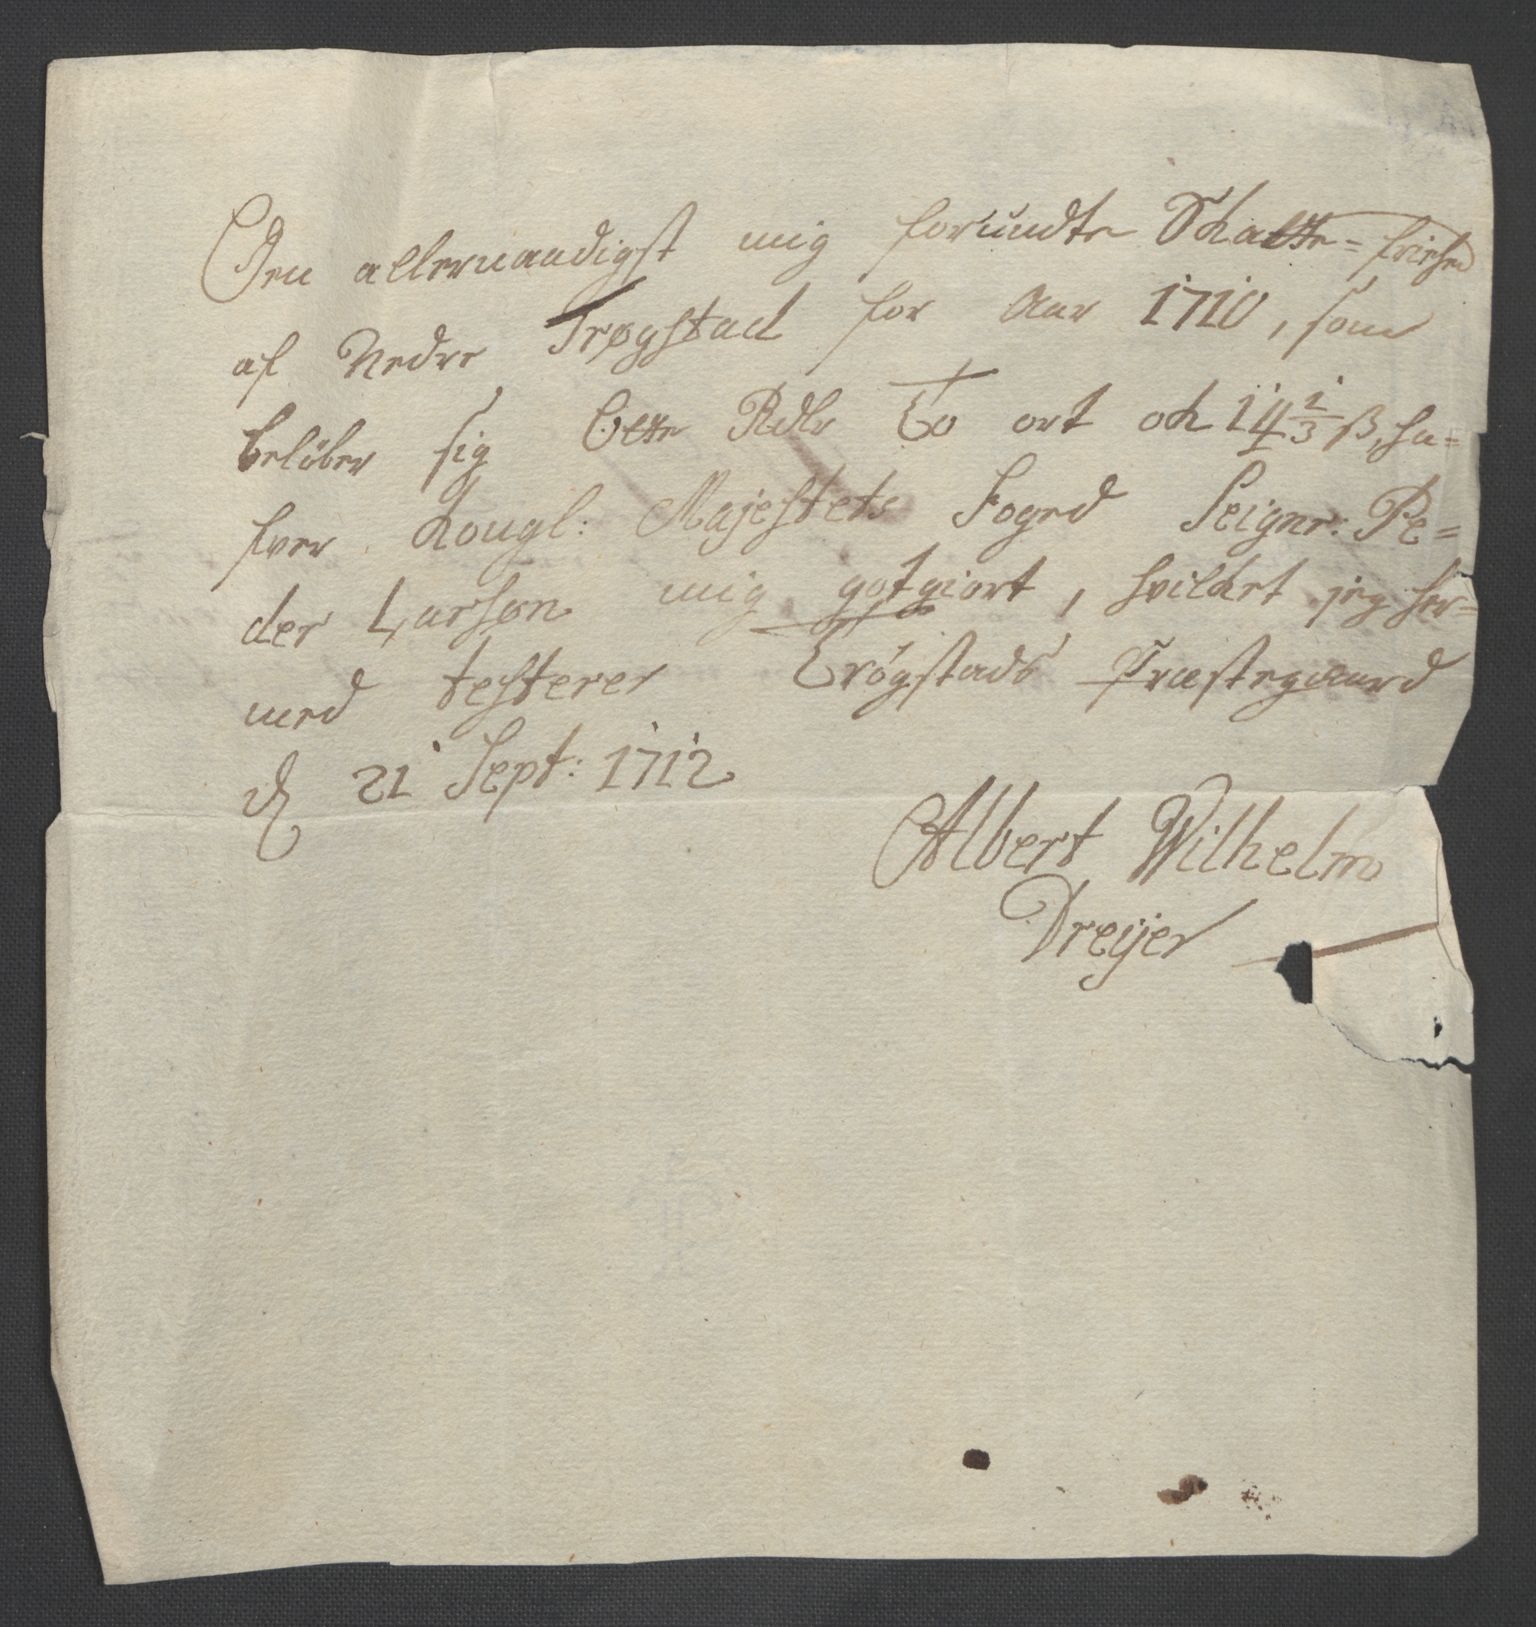 Den allernaadigst mig forundte Skatte-frihed
af Nedre Trøgstad for Aar 1710, som
belöber sig Otte Rdlr To ort och 14 1/3 ß, ha-
fver Kongl: Majestets Foged Seignr: Pe-
der Larsøn mig gotgiort, hvilket jeg her-
med testerer Trögstads Præstegaard
d 21 Sept: 1712
Albert Wilhelm
Dreÿer